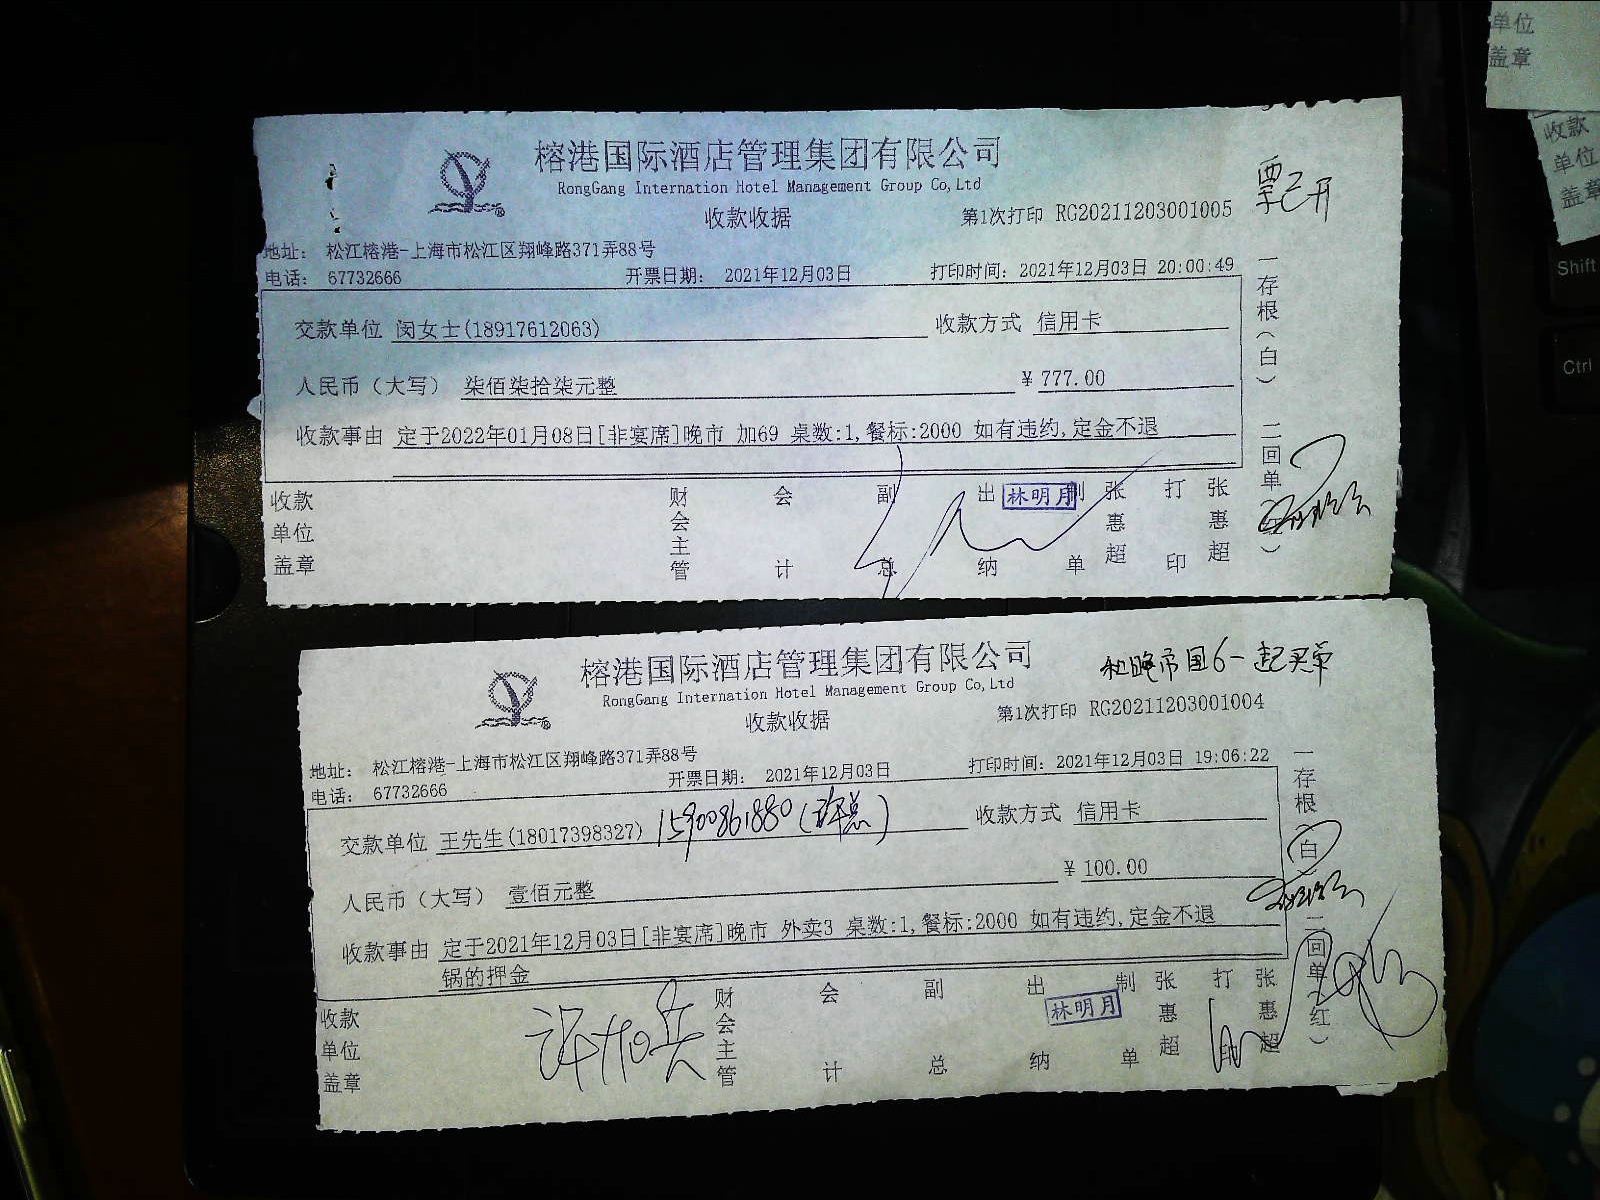 榕港国际酒店管理集团有限公司
RongGang Internation Hotel Management Group Co,Ltd
收款收据
第1次打印 RG20211203001005
票已开
地址： 松江榕港-上海市松江区翔峰路371弄88号
电话： 67732666
开票日期： 2021年12月03日
打印时间： 2021年12月03日 20:00:49
交款单位 闵女士(18917612063)
收款方式 信用卡
人民币（大写） 柒佰柒拾柒元整
￥777.00
收款事由 定于2022年01月08日[非宴席]晚市 加69 桌数:1,餐标:2000 如有违约,定金不退
一存根（白） 二回单
收款单位盖章
财会主管
会计
副总
出纳
林明月
制单
张惠超
打印
张惠超
榕港国际酒店管理集团有限公司
RongGang Internation Hotel Management Group Co,Ltd
收款收据
和晚市国6一起买单
第1次打印 RG20211203001004
地址： 松江榕港-上海市松江区翔峰路371弄88号
电话： 67732666
开票日期： 2021年12月03日
打印时间： 2021年12月03日 19:06:22
交款单位 王先生(18017398327) 15900861880(许总)
收款方式 信用卡
人民币（大写） 壹佰元整
￥100.00
收款事由 定于2021年12月03日[非宴席]晚市 外卖3 桌数:1,餐标:2000 如有违约,定金不退
锅的押金
一存根（白） 二回单（红）
收款单位盖章
财会主管
会计
副总
出纳
林明月
制单
张惠超
打印
张惠超
单位
盖章
收款
单位
盖章
Shift
Ctrl